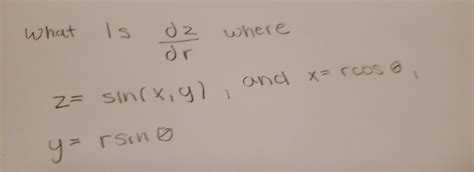 What Is dz/dr where
z= sin(x,y), and x= rcos θ,
y= rsin θ